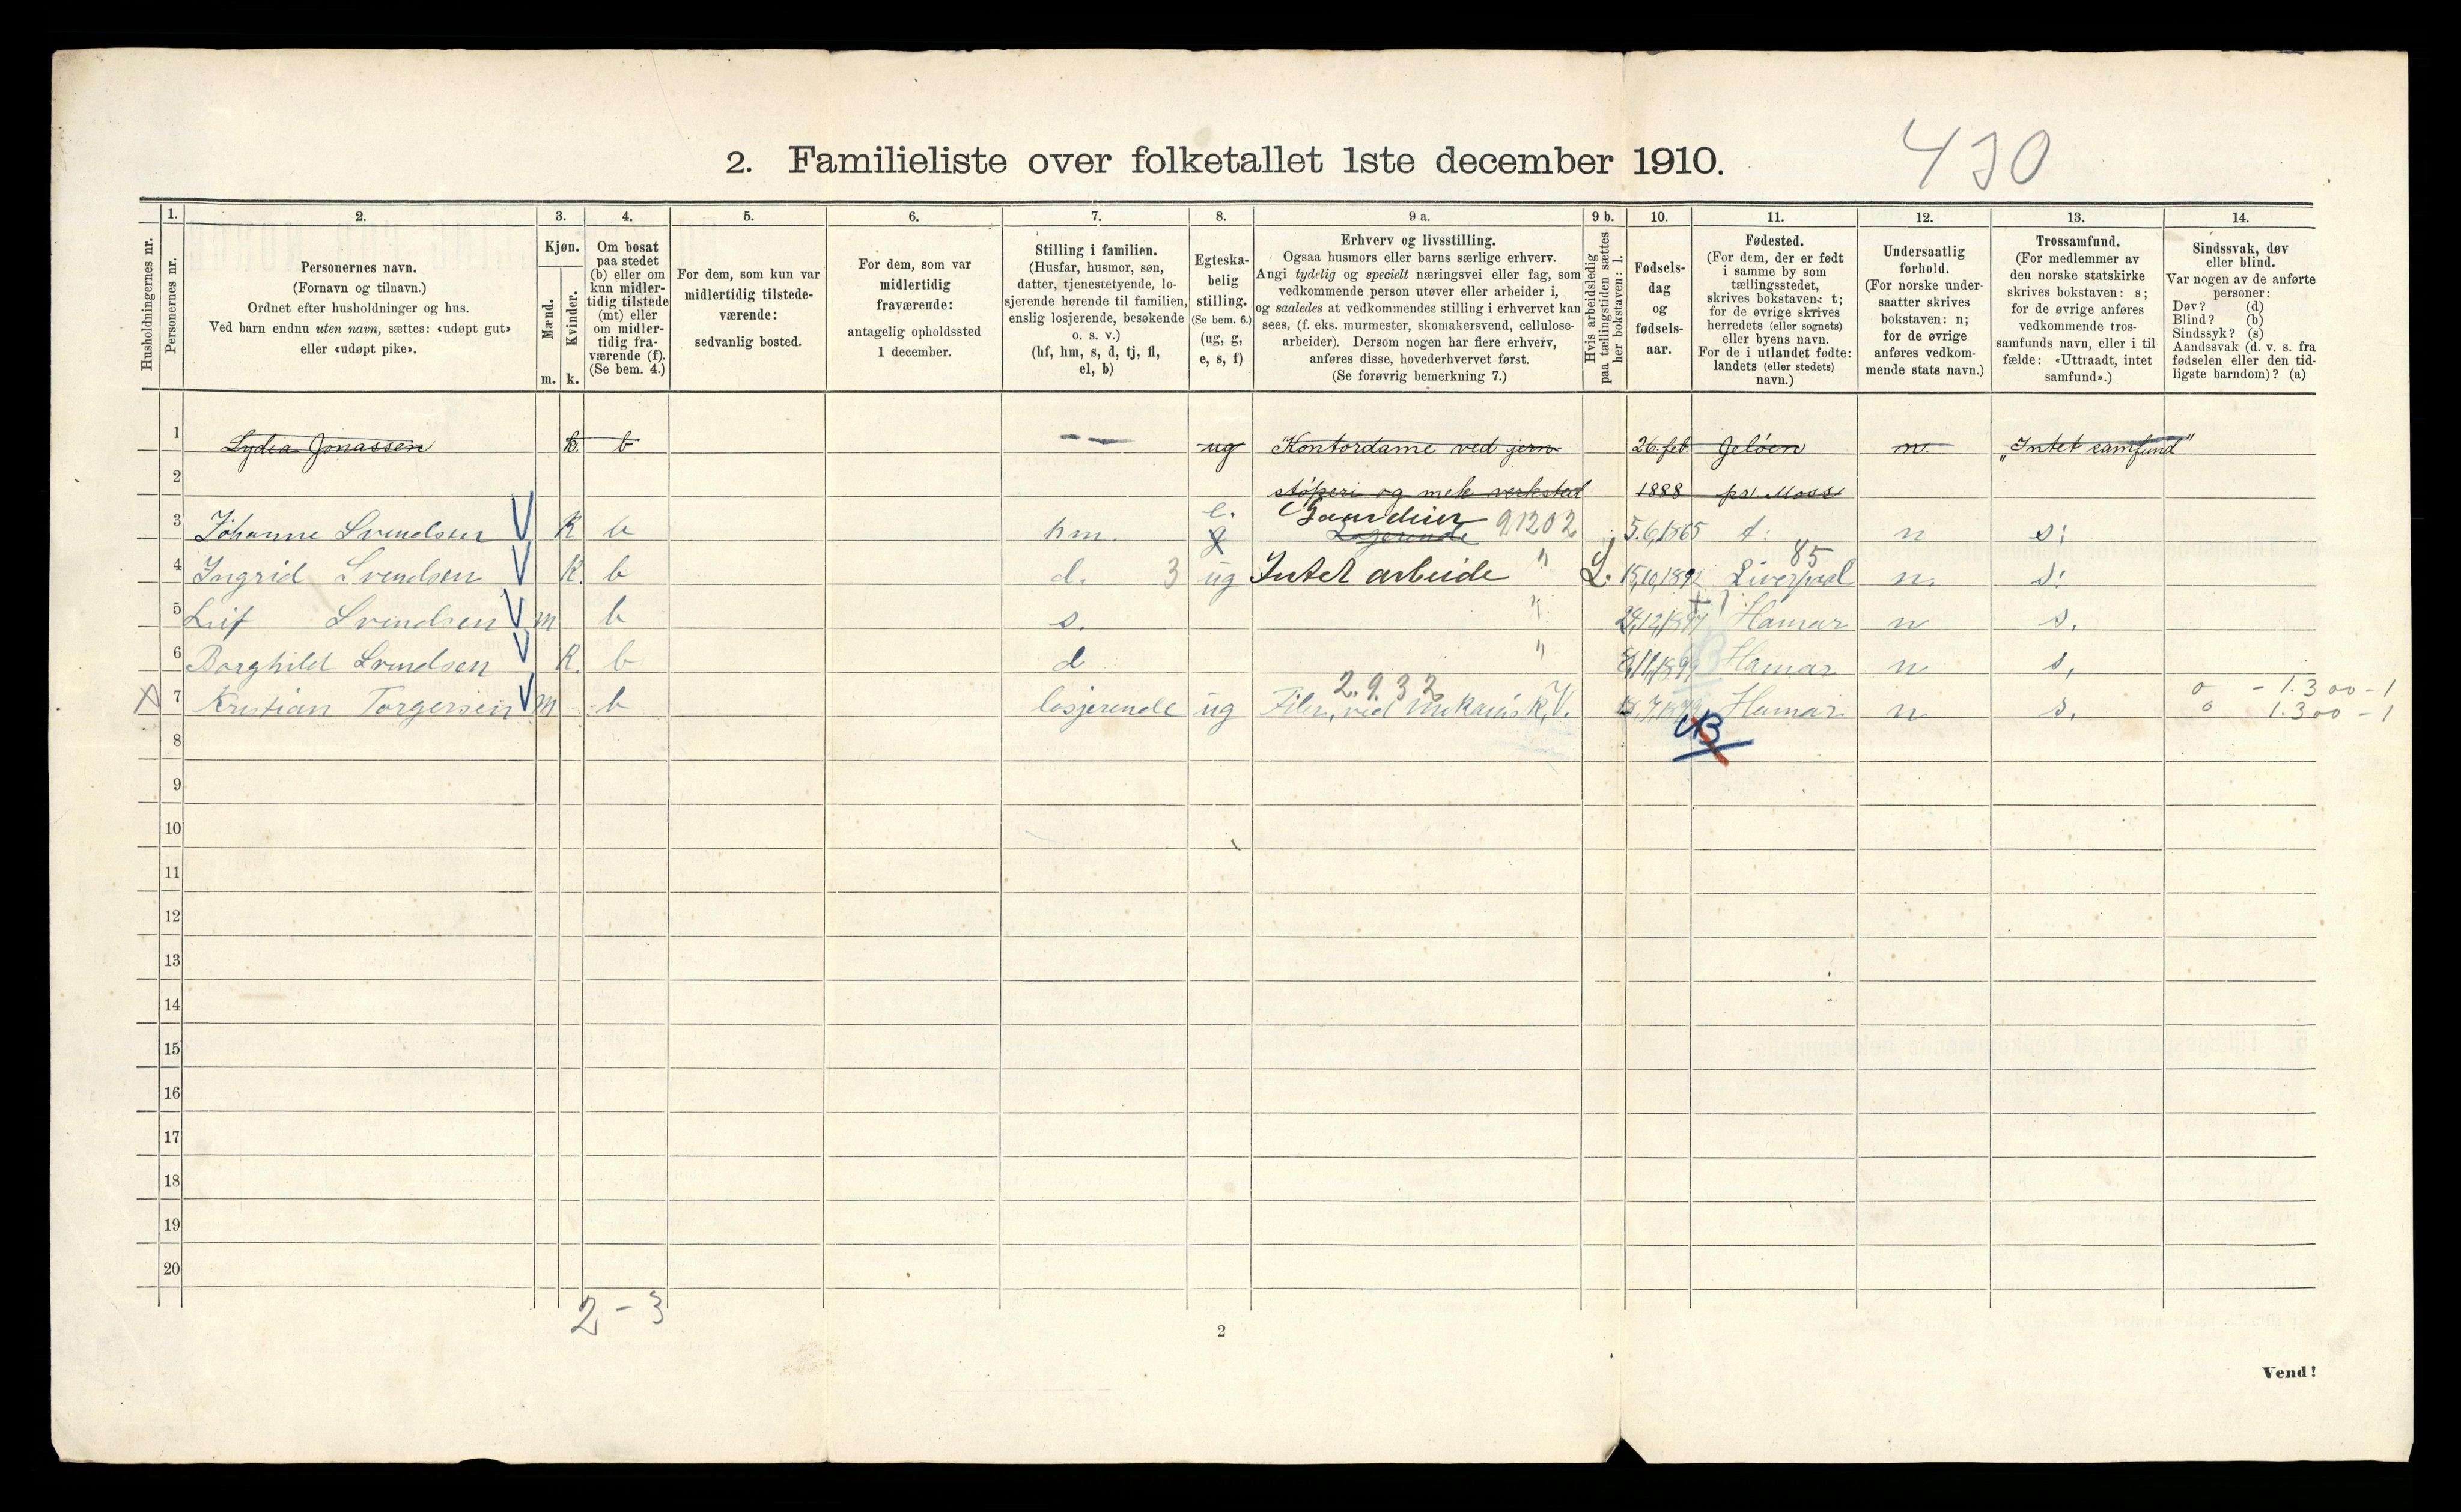 430
2. Familieliste over folketallet 1ste december 1910.
1. 2. 3. 4. 5. 6. 7. 8. 9 a. 9 b. 10. 11. 12. 13. 14.
Husholdningernes nr.
Personernes nr.
Personernes navn.
(Fornavn og tilnavn.)
Ordnet efter husholdninger og hus.
Ved barn endnu uten navn, sættes: «udøpt gut»
eller «udøpt pike».
Kjøn.
Mænd.
Kvinder.
m. k.
Om bosat
paa stedet
(b) eller om
kun midler-
tidig tilstede
(mt) eller
om midler-
tidig fra-
værende (f).
(Se bem. 4.)
For dem, som kun var
midlertidig tilstede-
værende:
sedvanlig bosted.
For dem, som var
midlertidig
fraværende:
antagelig opholdssted
1 december.
Stilling i familien.
(Husfar, husmor, søn,
datter, tjenestetyende, lo-
sjerende hørende til familien,
enslig losjerende, besøkende
o. s. v.)
(hf, hm, s, d, tj, fl,
el, b)
Egteska-
belig
stilling.
(Se bem. 6.)
(ug, g,
e, s, f)
Erhverv og livsstilling.
Ogsaa husmors eller barns særlige erhverv.
Angi tydelig og specielt næringsvei eller fag, som
vedkommende person utøver eller arbeider i,
og saaledes at vedkommendes stilling i erhvervet kan
sees, (f. eks. murmester, skomakersvend, cellulose-
arbeider). Dersom nogen har flere erhverv,
anføres disse, hovederhvervet først.
(Se forøvrig bemerkning 7.)
Hvis arbeidsledig
paa tællingstiden sættes
her bokstaven: l.
Fødsels-
dag
og
fødsels-
aar.
Fødested.
(For dem, der er født
i samme by som
tællingsstedet,
skrives bokstaven: t;
for de øvrige skrives
herredets (eller sognets)
eller byens navn.
For de i utlandet fødte:
landets (eller stedets)
navn.)
Undersaatlig
forhold.
(For norske under-
saatter skrives
bokstaven: n;
for de øvrige
anføres vedkom-
mende stats navn.)
Trossamfund.
(For medlemmer av
den norske statskirke
skrives bokstaven: s;
for de øvrige anføres
vedkommende tros-
samfunds navn, eller i til
fælde: «Uttraadt, intet
samfund».)
Sindssvak, døv
eller blind.
Var nogen av de anførte
personer:
Døv? (d)
Blind? (b)
Sindssyk? (s)
Aandssvak (d. v. s. fra
fødselen eller den tid-
ligste barndom)? (a)
1 Lydia Jonassen k. b — — ug Kontordame ved jern 26. feb. Jeløen n. „Intet samfund"
2 støperi og mek verksted 1888 pr. Moss
e. Gaardeier
3 Johanne Svendsen V K b hm. g Logerende 91202 5.6,1865 t: n s;
85
4 Ingrid Svendsen V K. b d. 3 ug Intet arbeide " L. 15,10,1892 Liverpool n. s!
5 Leif Svendsen V m b s. " Hamar n s.
6 Borghild Svendsen V K. b d " Hamar n s,
2.9.32 o - 1.300-1
7 Kristian Torgersen V m b losjerende ug Filer, ved Hamar n s. o 1.300-1
8
9
10
11
12
13
14
15
16
17
18
19
20
2 - 3
2
Vend!